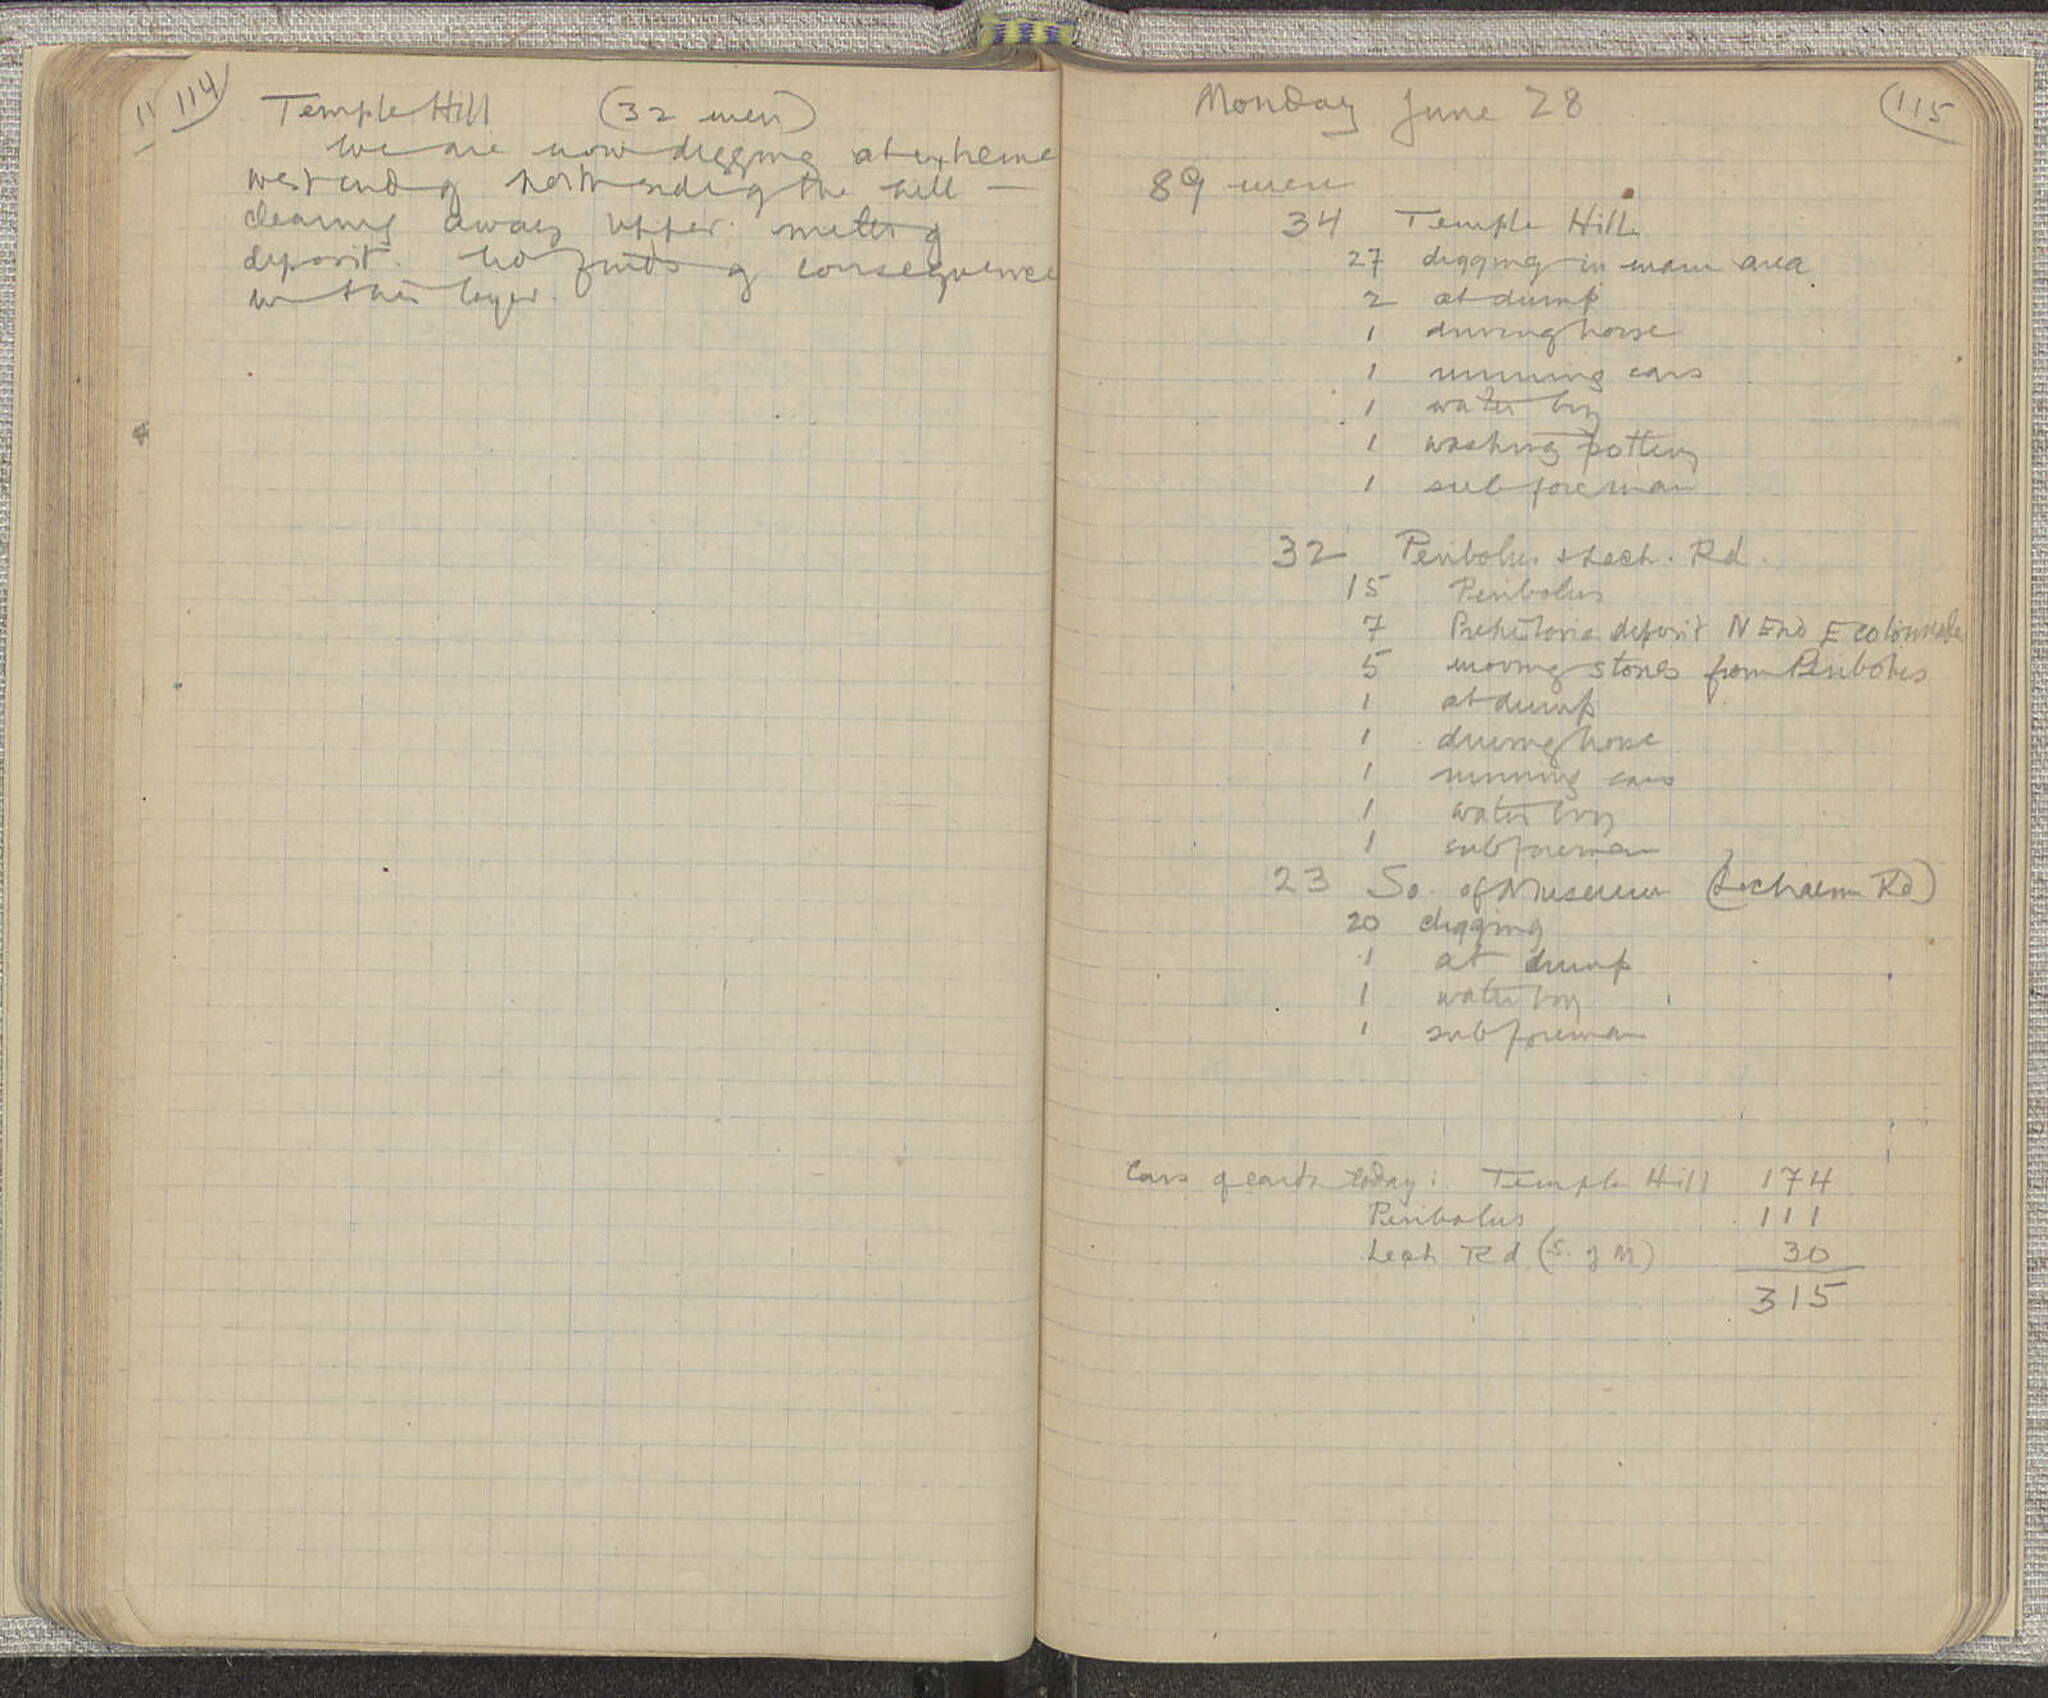 114
Temple Hill (32 men)
We are now digging at extreme
west end of north side of the hill —
clearing away upper meter of
deposit. No finds of consequence
in this layer.
115
Monday June 28
89 men
34 Temple Hill
27 digging in main area
2 at dump
1 driving horse
1 running cars
1 water boy
1 washing pottery
1 sub foreman
32 Peribolus + Lech. Rd.
15 Peribolus
7 Prehistoric deposit N End E colonnade
5 moving stones from Peribolus
1 at dump
1 driving horse
1 running cars
1 water boy
1 subforeman
23 So. of Museum (Lechaeum Rd)
20 digging
1 at dump
1 water boy
1 subforeman
Cars of earth today: Temple Hill 174
Peribolus 111
Lech Rd (S. of M) 30
315